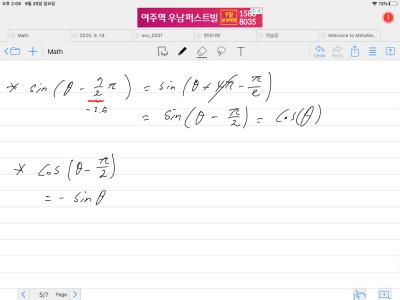 오후 2:08 9월 20일 일요일
13%
여주역 우남퍼스트빌
8035
Math
2020. 9. 14.
eco_0201
현대사회
연습장
Welcome to MetaMo...
Math
* sin(θ - 7/2 π) = sin(θ + 4π - π/2)
-3.5
= sin(θ - π/2) = cos(θ)
* cos(θ - π/2)
= - sinθ
5/7 Page >